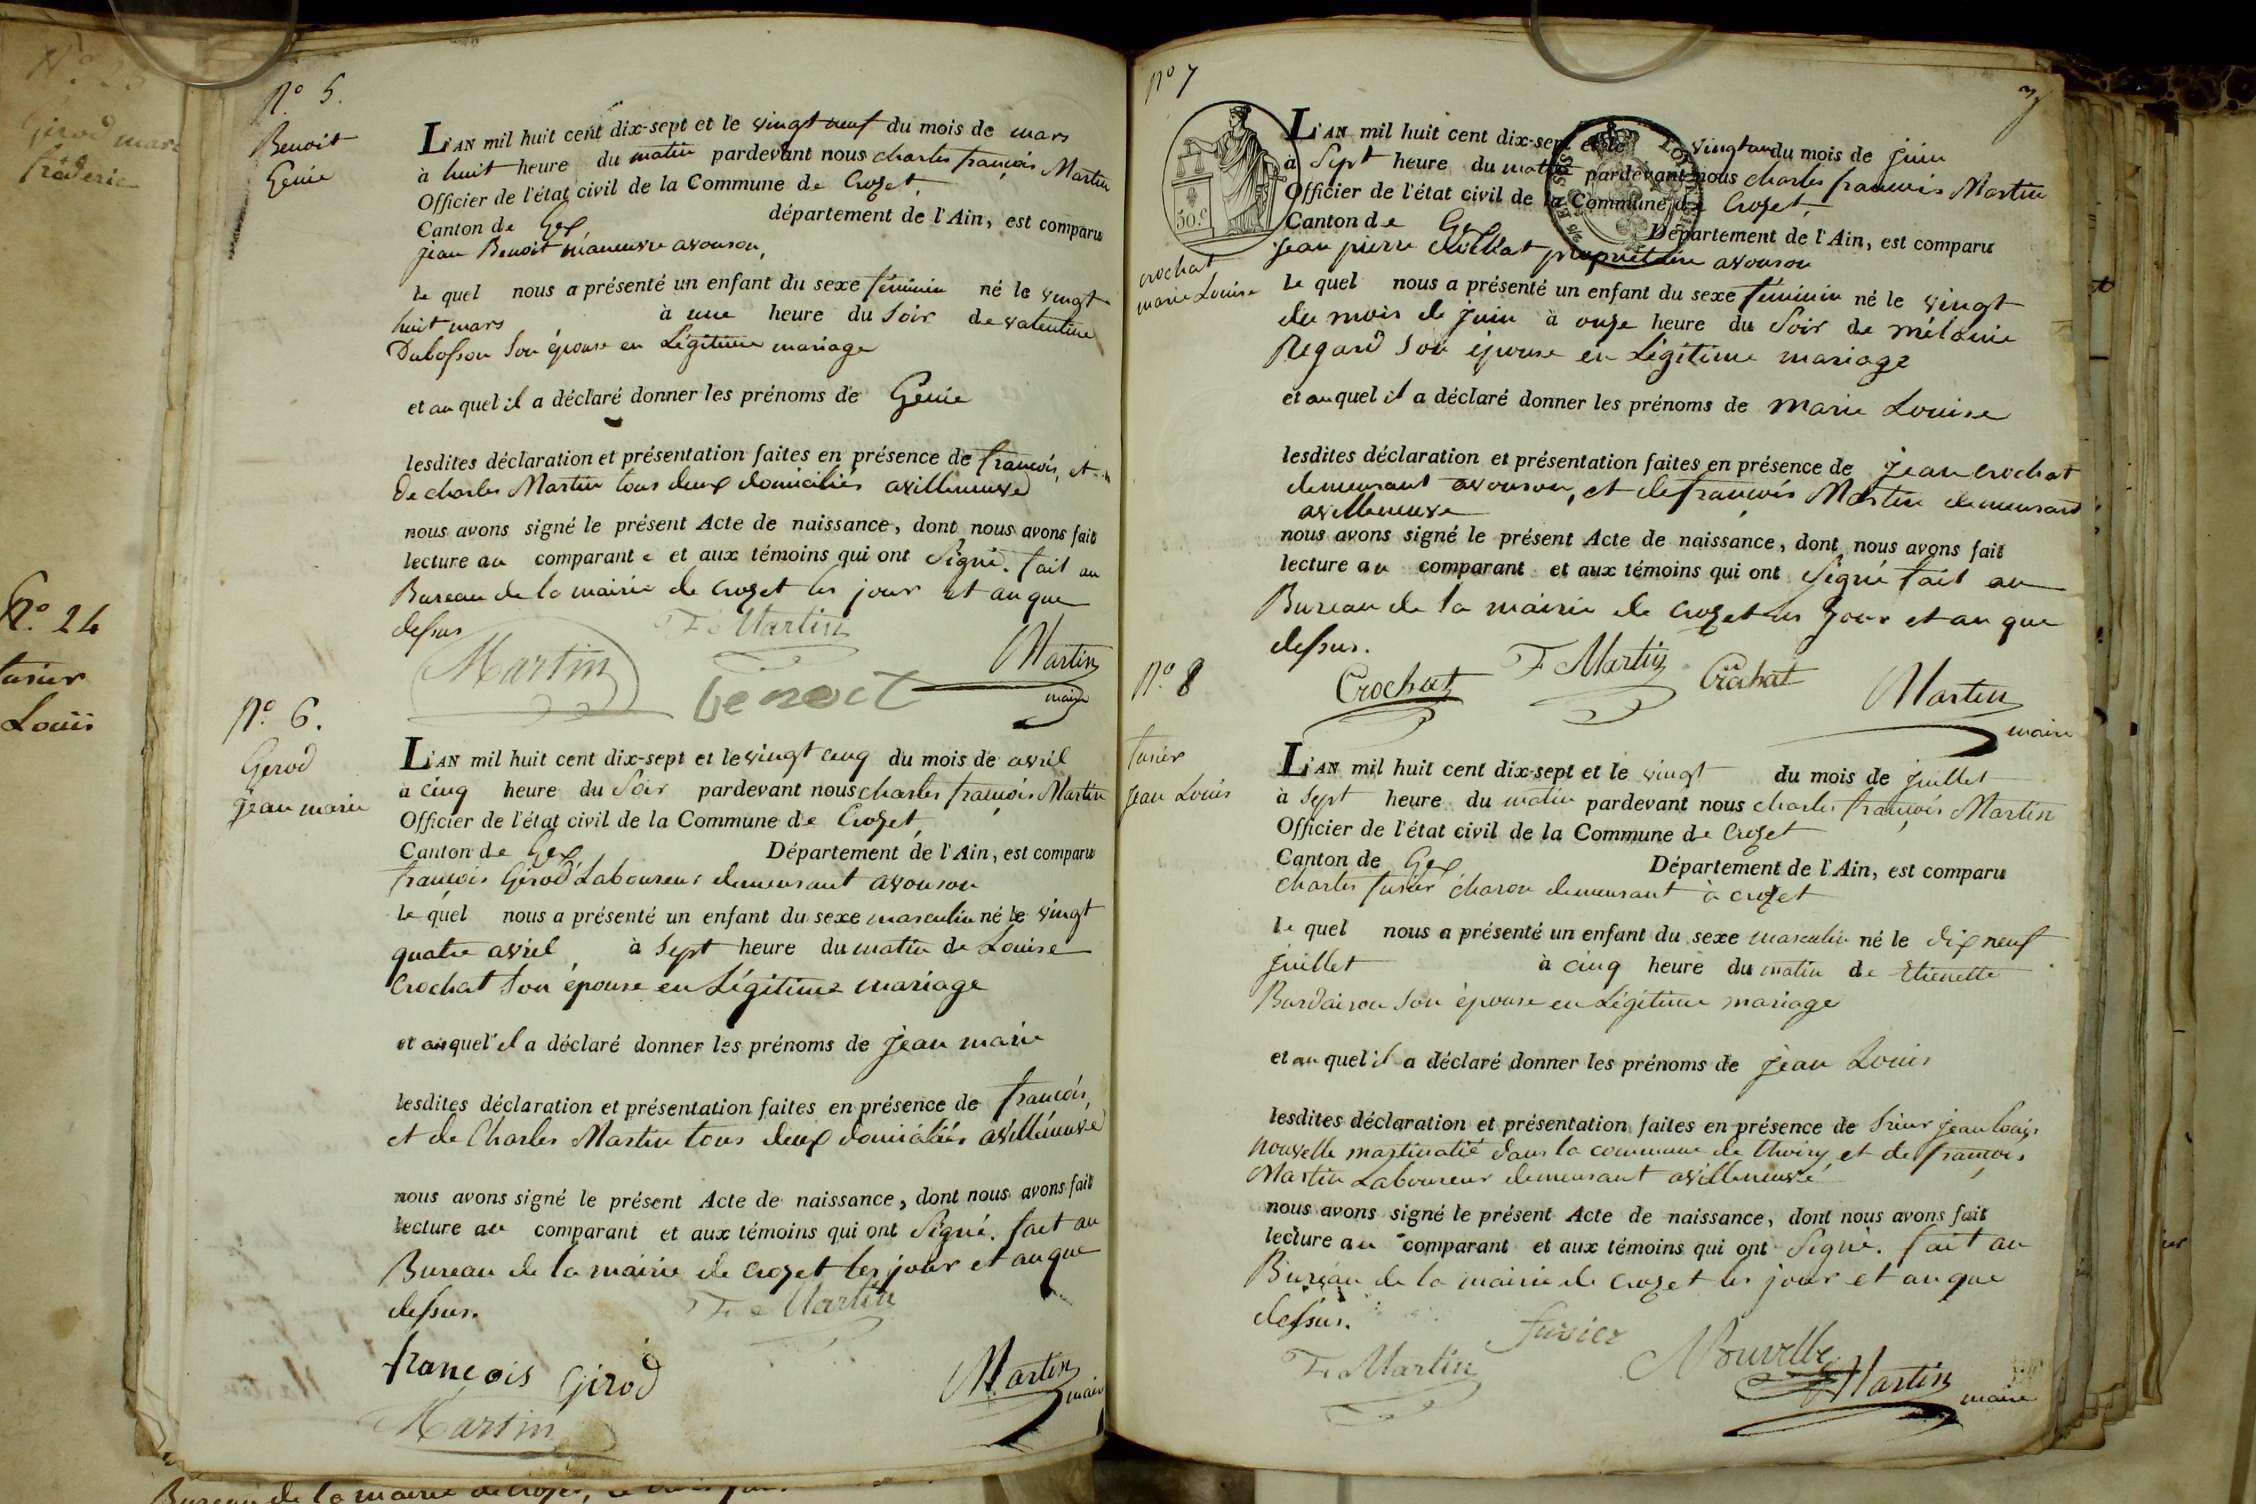 N° 5.
Benoit
Génie
L'AN mil huit cent dix-sept et le vingt neuf du mois de mars
à huit heure du matin pardevant nous charles françois Martin
Officier de l'état civil de la Commune de Crozet,
Canton de Gex département de l'Ain, est comparu
jean Benoit manœuvre avouson,
le quel nous a présenté un enfant du sexe féminin né le vingt
huit mars à une heure du soir de valentine
Dubosson son épouse en Légitime mariage
et au quel il a déclaré donner les prénoms de Génie
lesdites déclaration et présentation faites en présence de françois, et
de charles Martin tous deux domiciliés avilleneuve
nous avons signé le présent Acte de naissance, dont nous avons fait
lecture au comparant et aux témoins qui ont Signé. fait au
Bureau de la mairie de crozet les jour et an que
dessus
F. Martin
Martin
Benoit
Martin
maire
N° 6.
Girod
jean marie
L'AN mil huit cent dix-sept et le vingt cinq du mois de avril
à cinq heure du Soir pardevant nous charles françois Martin
Officier de l'état civil de la Commune de Crozet,
Canton de Gex Département de l'Ain, est comparu
françois Girod Laboureur demeurant avouson
le quel nous a présenté un enfant du sexe masculin né le vingt
quatre avril, à Sept heure du matin de Louise
Crochat son épouse en Légitime mariage
et au quel il a déclaré donner les prénoms de jean marie
lesdites déclaration et présentation faites en présence de françois,
et de Charles Martin tous deux domiciliés avilleneuve
nous avons signé le présent Acte de naissance, dont nous avons fait
lecture au comparant et aux témoins qui ont Signé. fait au
Bureau de la mairie de crozet les jour et an que
dessus.
F. Martin
françois Girod
Martin
maire
Martin
N° 7
crochat
marie Louise
50.c
L'AN mil huit cent dix-sept et le vingt un du mois de juin
à Sept heure du matin pardevant nous charles françois Martin
Officier de l'état civil de la Commune de Crozet,
Canton de Gex Département de l'Ain, est comparu
jean pierre crochat propriétaire avouson
le quel nous a présenté un enfant du sexe féminin né le vingt
du mois de juin à onze heure du Soir de mélanie
Regard son épouse en Légitime mariage
et au quel il a déclaré donner les prénoms de marie Louise
lesdites déclaration et présentation faites en présence de jean crochat
demeurant avouson, et de françois Martin demeurant
avilleneuve
nous avons signé le présent Acte de naissance, dont nous avons fait
lecture au comparant et aux témoins qui ont Signé fait au
Bureau de la mairie de crozet les jour et an que
dessus.
Crochat
F. Martin
Crochat
Martin
maire
N° 8
fusier
jean Louis
L'AN mil huit cent dix-sept et le vingt du mois de juillet
à Sept heure du matin pardevant nous charles françois Martin
Officier de l'état civil de la Commune de Crozet
Canton de Gex Département de l'Ain, est comparu
charles fusier charon demeurant à crozet
le quel nous a présenté un enfant du sexe masculin né le dix neuf
juillet à cinq heure du matin de Etienette
Burdairon son épouse en Légitime mariage
et au quel il a déclaré donner les prénoms de jean Louis
lesdites déclaration et présentation faites en présence de Sieur jean louis
nouvelle dans la commune de thoiry et de françois
Martin Laboureur demeurant avilleneuve
nous avons signé le présent Acte de naissance, dont nous avons fait
lecture au comparant et aux témoins qui ont Signé. fait au
Bureau de la mairie de crozet les jour et an que
dessus.
fusier
F. Martin
Nouvelle
Martin
maire
Girod marc
fréderic
N° 24
fusier
Louis
Bureau de la mairie de crozet,